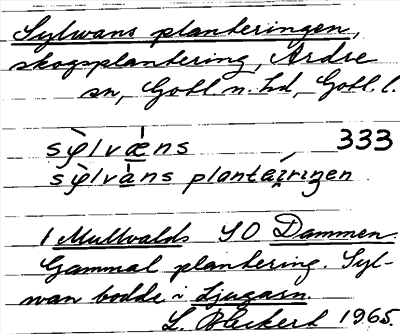 Sylwans planteringen,
skogsplantering, Ardre
sn, Gotl. n. hd, Gotl. l.
sỳlvæ̀ns 333
sỳlvàns plantäiríŋen
1 Mullvalds SO Dammen.
Gammal plantering. Syl-
wan bodde i Ljugarn.
L. Bleckert 1965.